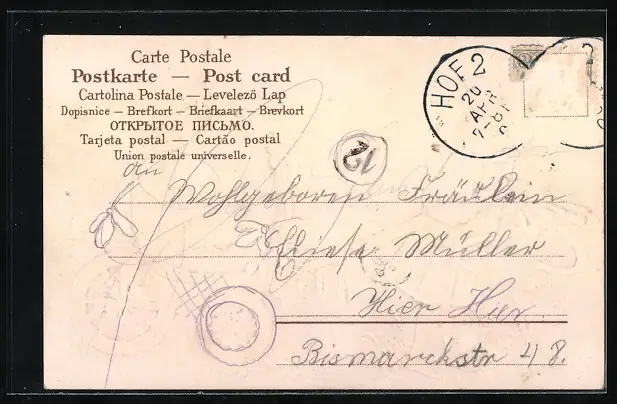 Carte Postale
Postkarte — Post card
Cartolina Postale — Levelező Lap
Dopisnice — Brefkort — Briefkaart — Brevkort
ОТКРЫТОЕ ПИСЬМО.
Tarjeta postal — Cartão postal
Union postale universelle.
HOF 2
20
APR
7-8
12
An
Wohlgeboren Fräulein
Eliese Müller
Hier Hier.
Bismarckstr 48.